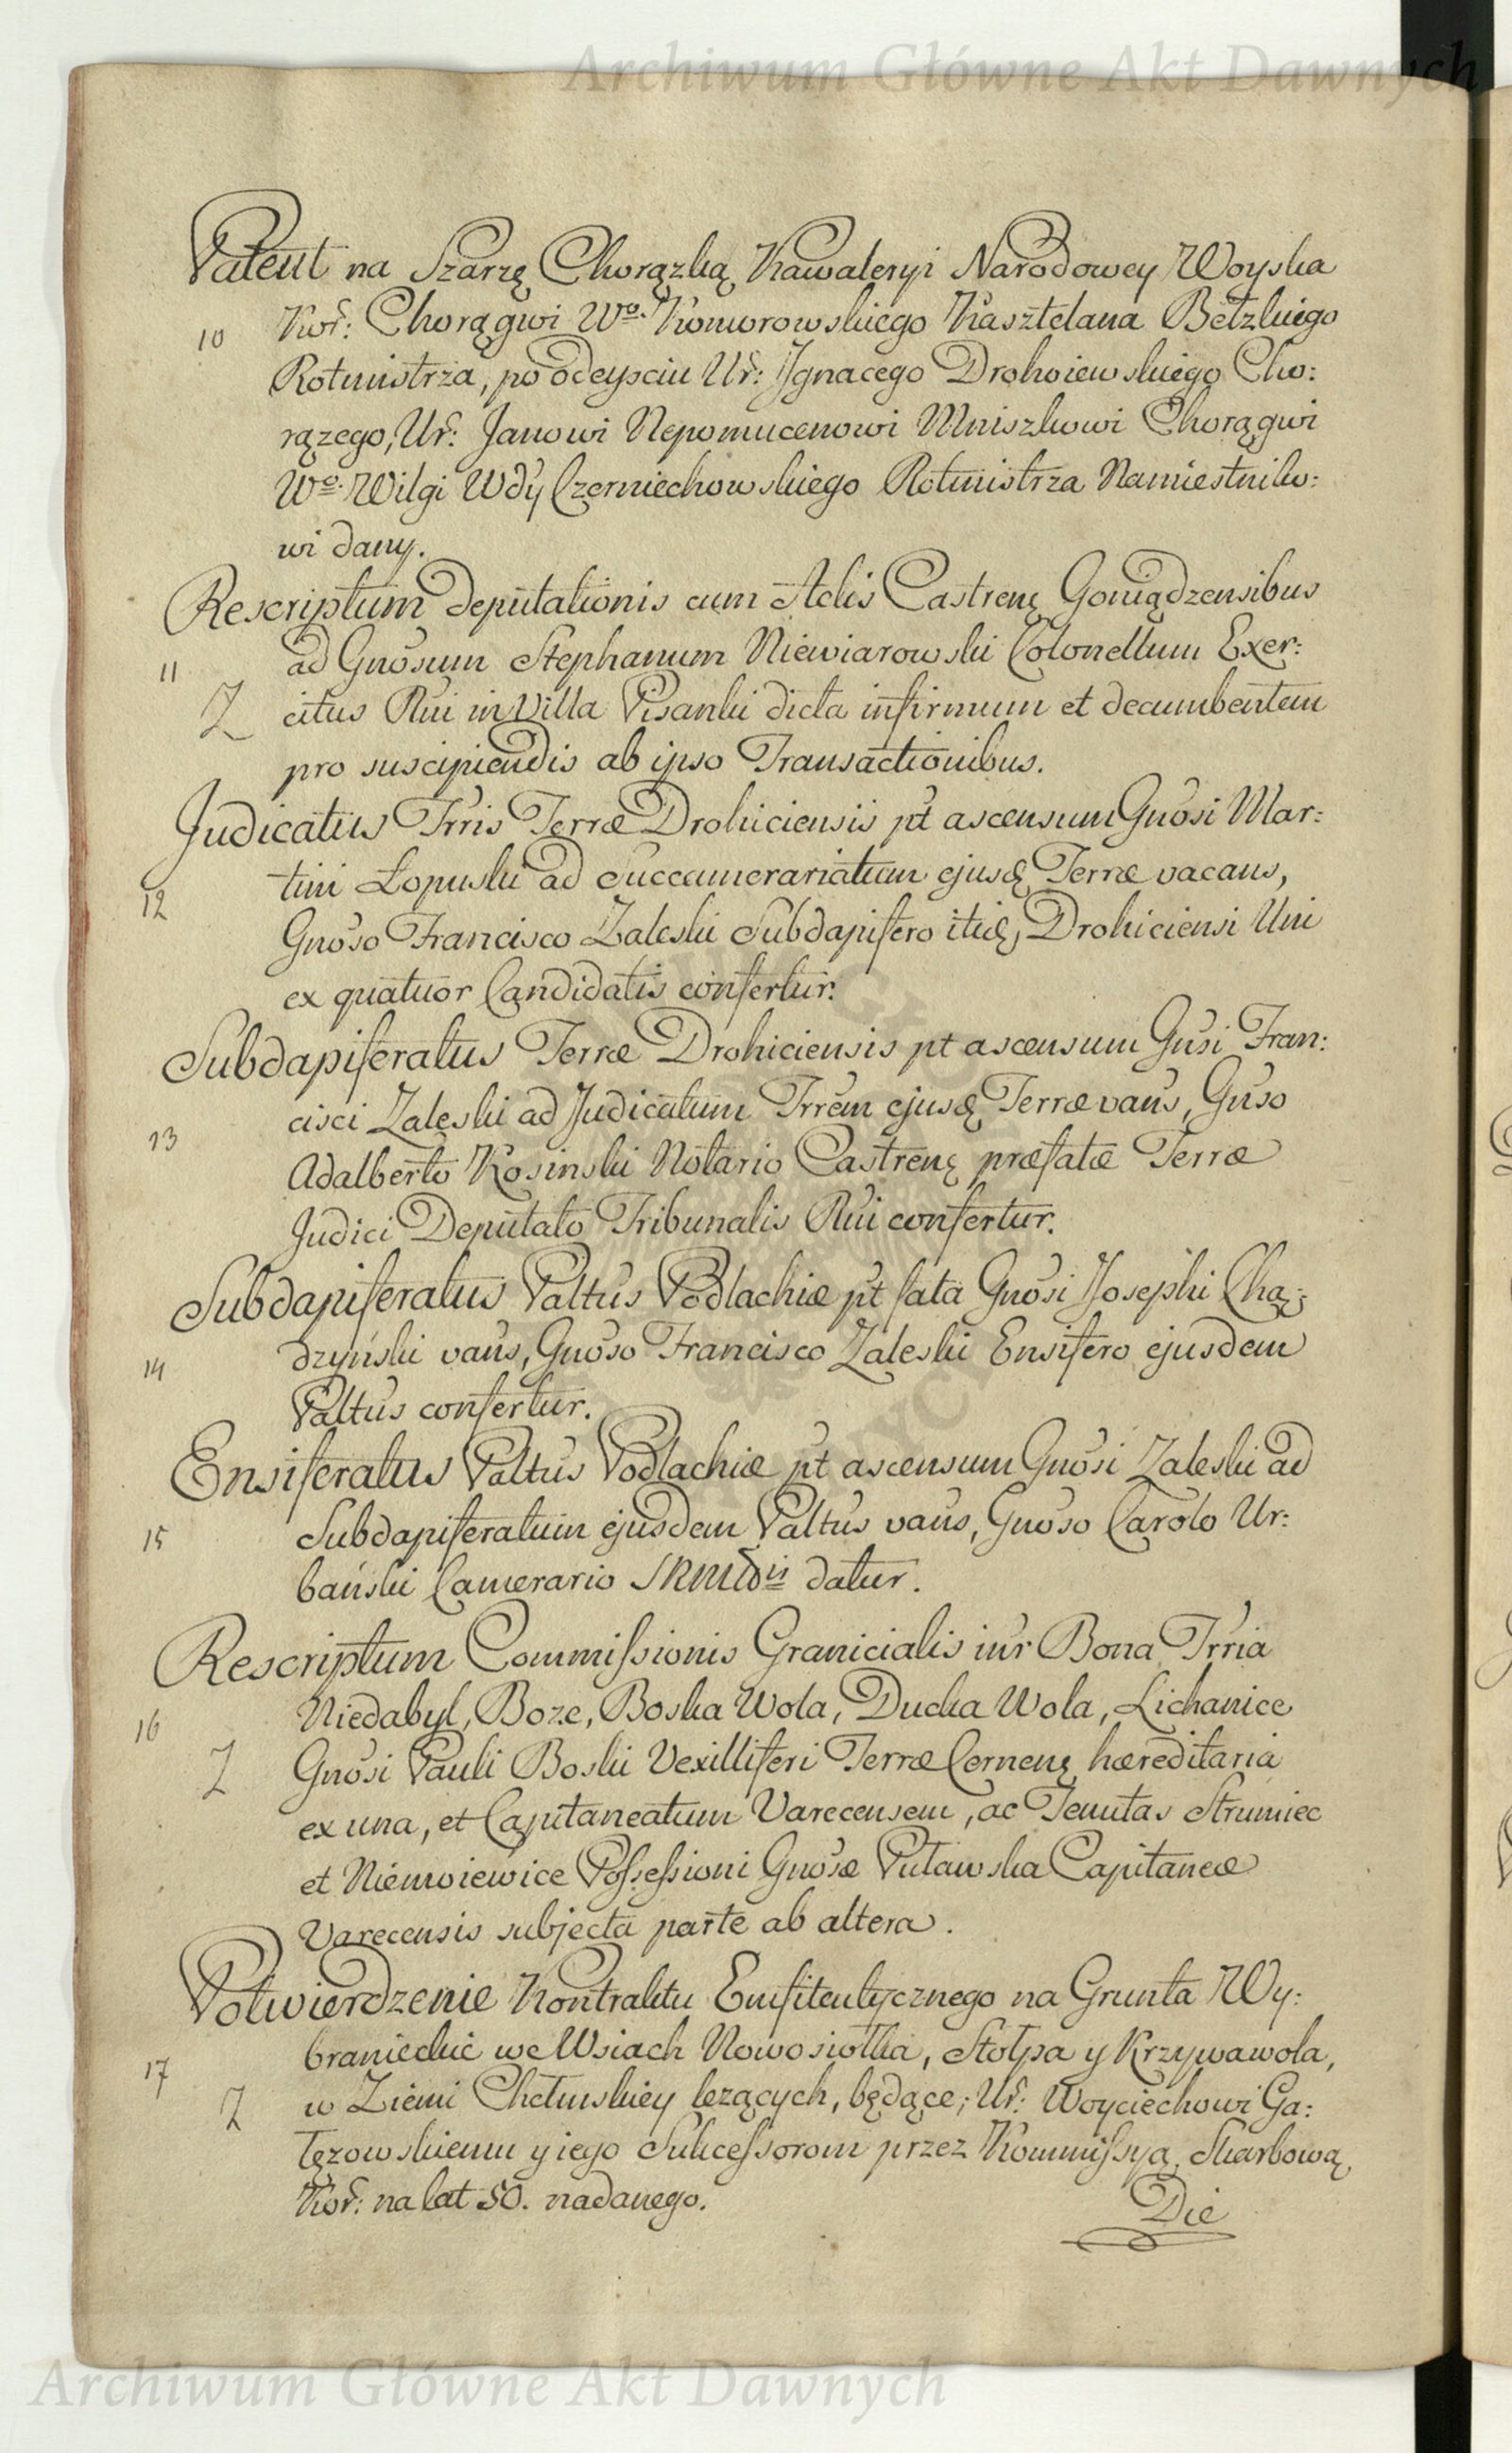 Archiwum Główne Akt Dawnych
Patent na Szarzę Chorązką Kawaleryi Narodowey Woyska
10 Kor: Chorągwi Wo. Komorowskiego Kasztelana Bełzkiego
Rotmistrza, po odeysciu Ur: Jgnacego Drohoiewskiego Cho:
rązego, Ur: Janowi Nepomucenowi Mniszkowi Chorągwi
Wo. Wilgi Wdy Czerniechowskiego Rotmistrza Namiestniko:
wi dany.
Rescriptum Deputationis cum Actis Castrenę Goniądzensibus
11 ad Gnosum Stephanum Niewiarowski Colonellum Exer:
Z citus Rui in Villa Pisanki dicta infirmum et decumbentem
pro suscipiendis ab ipso Transactionibus.
Judicatus Trris Terræ Drohiciensis pt ascensum Gnosi Mar:
12 tini Łopuski ad Succamerariatum ejusdę Terræ vacans,
Gnoso Francisco Zaleski Subdapifero itidę, Drohiciensi Uni
ex quatuor Candidatis confertur.
Subdapiferatus Terræ Drohiciensis pt ascensum Gnsi Fran:
13 cisci Zaleski ad Judicatum Trrem ejusdę Terræ vans, Gnso
Adalberto Kosinski Notario Castrenę præfatæ Terræ
Judici Deputato Tribunalis Rui confertur.
Subdapiferatus Paltus Podlachiæ pt fata Gnosi Josephi Chą:
14 dzyński vans, Gnoso Francisco Zaleski Ensifero ejusdem
Paltus confertur.
Ensiferatus Paltus Podlachiæ pt ascensum Gnosi Zaleski ad
15 Subdapiferatum ejusdem Paltus vans, Gnoso Carolo Ur:
bański Camerario SRMtis datur.
Rescriptum Commissionis Granicialis inr Bona Trria
16 Niedabyl, Boze, Boska Wola, Ducka Wola, Lichanice
Z Gnosi Pauli Boski Vexilliferi Terræ Cernenę hæreditaria
ex una, et Capitaneatum Varecensem, ac Tenutas Strumiec
et Niemoiewice Possessioni Gnosæ Puławska Capitaneæ
Varecensis subjecta parte ab altera.
Potwierdzenie Kontraktu Emfiteutycznego na Grunta Wy:
17 branieckie we Wsiach Nowosiołka, Stołpa y Krzywawola,
Z w Ziemi Chełmskiey lezących, będące; Ur: Woyciechowi Ga:
łęzowskiemu y iego Sukcessorom przez Kommissyą Skarbową
Kor: na lat 50. nadanego.
Die
Archiwum Główne Akt Dawnych